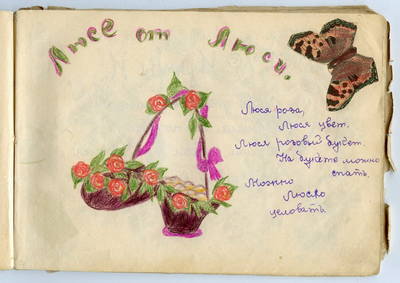 Люсе от Люси.
Люся роза,
Люся цвет.
Люся розовый букет.
На букете можно
спать,
Можно
Люсю
целовать